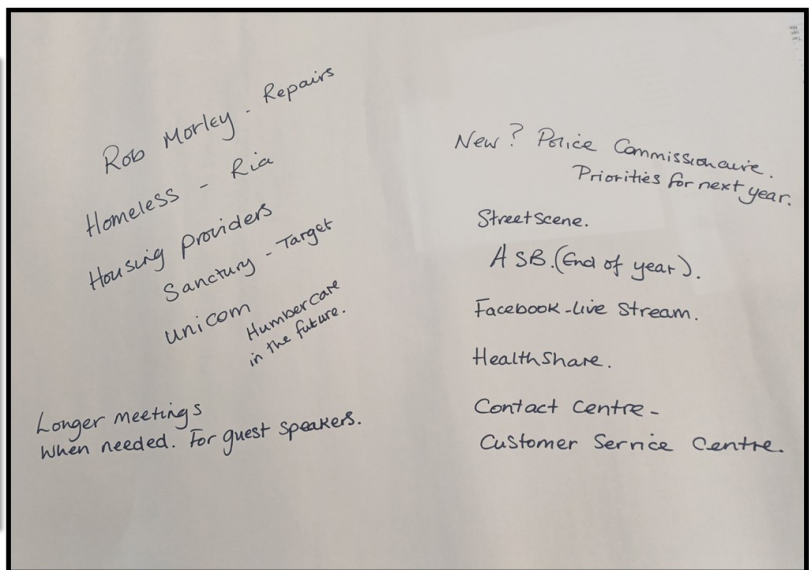 Rob Morley - Repairs
Homeless - Ria
Housing Providers
Sanctury - Target
unicom
Humbercare
in the future.
Longer meetings
when needed. For guest speakers.
New? Police Commissionaire.
Priorities for next year.
Streetscene.
ASB. (End of year).
Facebook-live stream.
Healthshare.
Contact Centre -
Customer Service Centre.